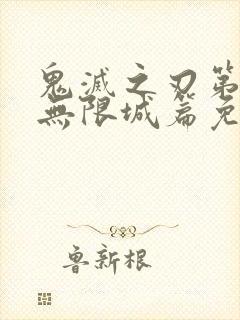 鬼滅之刃第
無限城篇免
魯新根